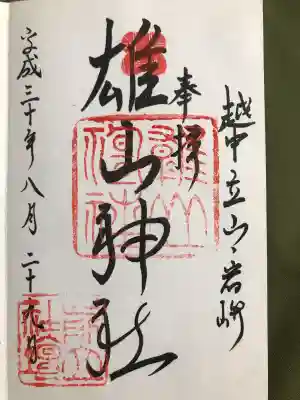 越中立山岩峅
奉拝
雄山神社
平成三十年八月二十九日
雄山神社